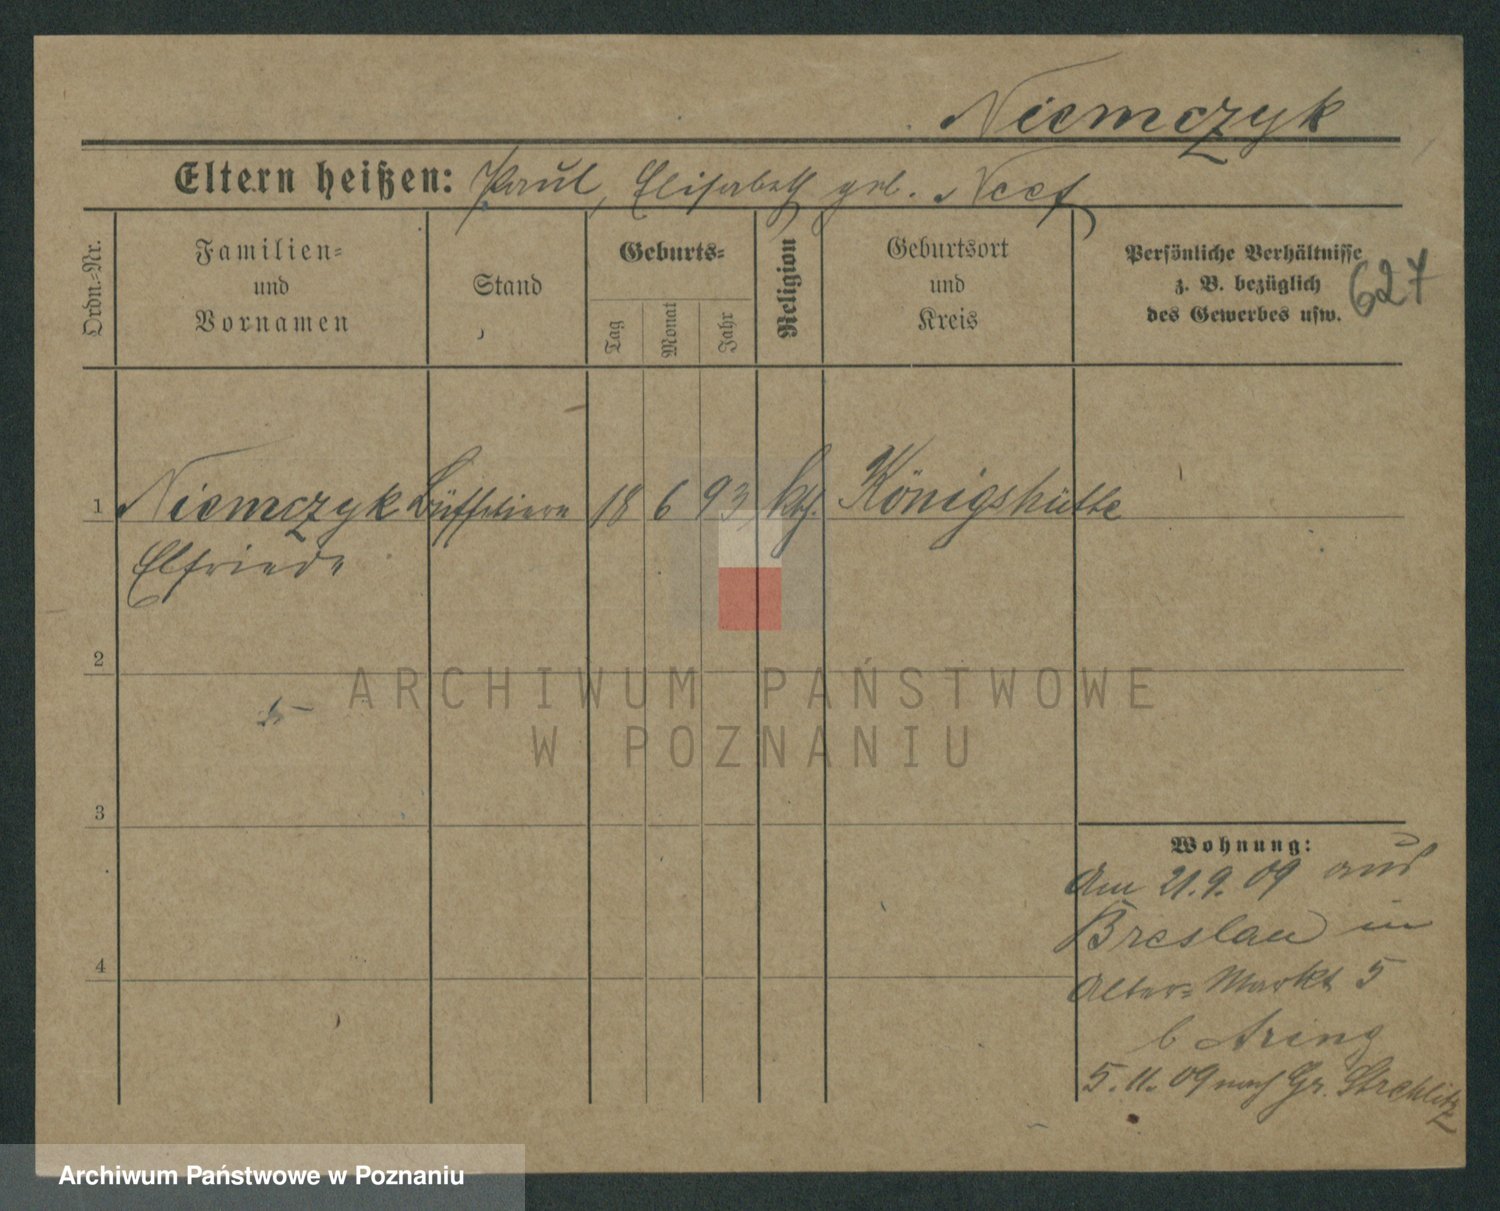 Niemczyk
Eltern heißen: Paul, Elisabeth geb. Neef
Ordn.-Nr.
Familien-
und
Vornamen
Stand
Geburts-
Tag
Monat
Jahr
Religion
Geburtsort
und
Kreis
Persönliche Verhältnisse
z. B. bezüglich
des Gewerbes usw.
627
1 Niemczyk 18 6 93 kth. Königshütte
Elfriede
2
3
4
ARCHIWUM PAŃSTWOWE
W POZNANIU
Wohnung:
Am 21.9.09 aus
Breslau in
Alter-Markt 5
b Aring
5.11.09 nach Gr. Strehlitz
Archiwum Państwowe w Poznaniu